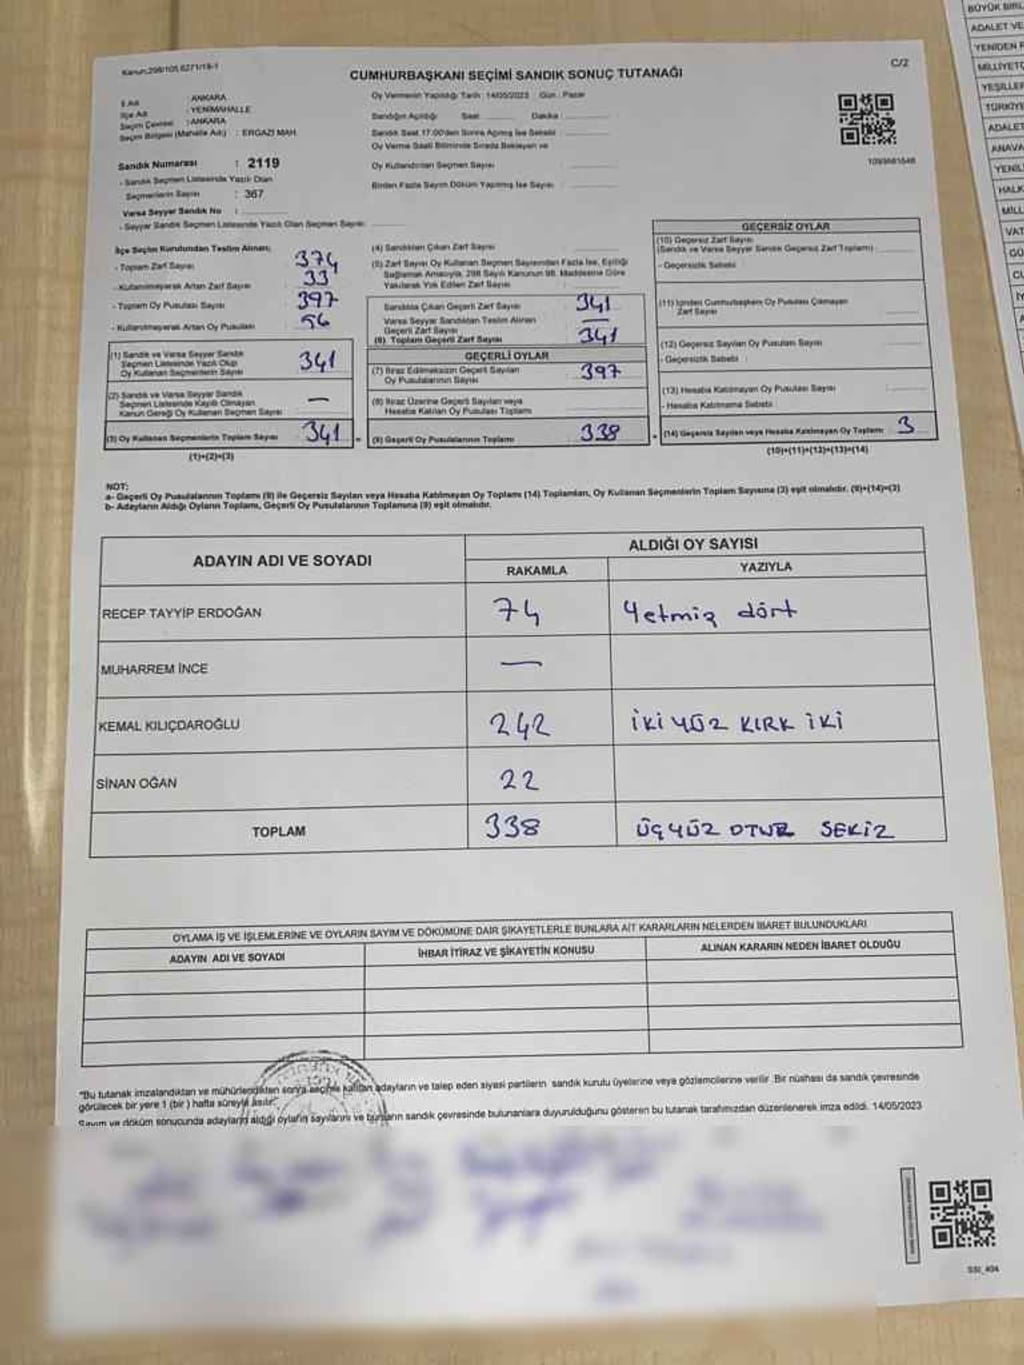 Kanun:298/105,6271/19-1
C/2
CUMHURBAŞKANI SEÇİMİ SANDIK SONUÇ TUTANAĞI
İl Adı : ANKARA
İlçe Adı : YENİMAHALLE
Seçim Çevresi : ANKARA
Seçim Bölgesi (Mahalle Adı) : ERGAZİ MAH.
Sandık Numarası : 2119
- Sandık Seçmen Listesinde Yazılı Olan
Seçmenlerin Sayısı : 367
Varsa Seyyar Sandık No :
- Seyyar Sandık Seçmen Listesinde Yazılı Olan Seçmen Sayısı:
Oy Vermenin Yapıldığı Tarih :14/05/2023 Gün : Pazar
Sandığın Açıldığı Saat Dakika :
Sandık Saat 17:00'den Sonra Açılmış İse Sebebi :
Oy Verme Saati Bitiminde Sırada Bekleyen ve
Oy Kullandırılan Seçmen Sayısı
Birden Fazla Sayım Döküm Yapılmış İse Sayısı :
İlçe Seçim Kurulundan Teslim Alınan;
- Toplam Zarf Sayısı : 374
- Kullanılmayarak Artan Zarf Sayısı : 33
- Toplam Oy Pusulası Sayısı : 397
- Kullanılmayarak Artan Oy Pusulası : 56
(1) Sandık ve Varsa Seyyar Sandık
Seçmen Listesinde Yazılı Olup
Oy Kullanan Seçmenlerin Sayısı 341
(2) Sandık ve Varsa Seyyar Sandık
Seçmen Listesinde Kayıtlı Olmayan
Kanun Gereği Oy Kullanan Seçmen Sayısı —
(3) Oy Kullanan Seçmenlerin Toplam Sayısı 341
(1)+(2)=(3)
(4) Sandıktan Çıkan Zarf Sayısı
(5) Zarf Sayısı Oy Kullanan Seçmen Sayısından Fazla İse, Eşitliği
Sağlamak Amacıyla, 298 Sayılı Kanunun 98. Maddesine Göre
Yakılarak Yok Edilen Zarf Sayısı
Sandıkta Çıkan Geçerli Zarf Sayısı 341
Varsa Seyyar Sandıktan Teslim Alınan
Geçerli Zarf Sayısı —
(6) Toplam Geçerli Zarf Sayısı 341
GEÇERLİ OYLAR
(7) İtiraz Edilmeksizin Geçerli Sayılan
Oy Pusulalarının Sayısı 397
(8) İtiraz Üzerine Geçerli Sayılan veya
Hesaba Katılan Oy Pusulası Toplamı
(9) Geçerli Oy Pusulalarının Toplamı 338
1093681548
GEÇERSİZ OYLAR
(10) Geçersiz Zarf Sayısı
(Sandık ve Varsa Seyyar Sandık Geçersiz Zarf Toplamı)
- Geçersizlik Sebebi
(11) İçinden Cumhurbaşkanı Oy Pusulası Çıkmayan
Zarf Sayısı
(12) Geçersiz Sayılan Oy Pusulası Sayısı
- Geçersizlik Sebebi
(13) Hesaba Katılmayan Oy Pusulası Sayısı
- Hesaba Katılmama Sebebi
(14) Geçersiz Sayılan veya Hesaba Katılmayan Oy Toplamı 3
(10)+(11)+(12)+(13)=(14)
NOT:
a- Geçerli Oy Pusulalarının Toplamı (9) ile Geçersiz Sayılan veya Hesaba Katılmayan Oy Toplamı (14) Toplamları, Oy Kullanan Seçmenlerin Toplam Sayısına (3) eşit olmalıdır. (9)+(14)=(3)
b- Adayların Aldığı Oyların Toplamı, Geçerli Oy Pusulalarının Toplamına (9) eşit olmalıdır.
ADAYIN ADI VE SOYADI
ALDIĞI OY SAYISI
RAKAMLA YAZIYLA
RECEP TAYYİP ERDOĞAN 74 Yetmiş dört
MUHARREM İNCE —
KEMAL KILIÇDAROĞLU 242 İKİ YÜZ KIRK İKİ
SİNAN OĞAN 22
TOPLAM 338 ÜÇYÜZ OTUZ SEKİZ
OYLAMA İŞ VE İŞLEMLERİNE VE OYLARIN SAYIM VE DÖKÜMÜNE DAİR ŞİKAYETLERLE BUNLARA AİT KARARLARIN NELERDEN İBARET BULUNDUKLARI
ADAYIN ADI VE SOYADI İHBAR İTİRAZ VE ŞİKAYETİN KONUSU ALINAN KARARIN NEDEN İBARET OLDUĞU
"Bu tutanak imzalandıktan ve mühürlendikten sonra seçime katılan adayların ve talep eden siyasi partilerin sandık kurulu üyelerine veya gözlemcilerine verilir. Bir nüshası da sandık çevresinde
görülecek bir yere 1 (bir) hafta süreyle asılır."
Sayım ve döküm sonucunda adayların aldığı oyların sayılarını ve bunların sandık çevresinde bulunanlara duyurulduğunu gösteren bu tutanak tarafımızdan düzenlenerek imza edildi. 14/05/2023
SSI_404
BÜYÜK BİRL
ADALET VE
YENİDEN
MİLLİYETÇ
YEŞİLLER
TÜRKİYE
ADALET
ANAVA
YENİL
HALK
MİLL
VAT